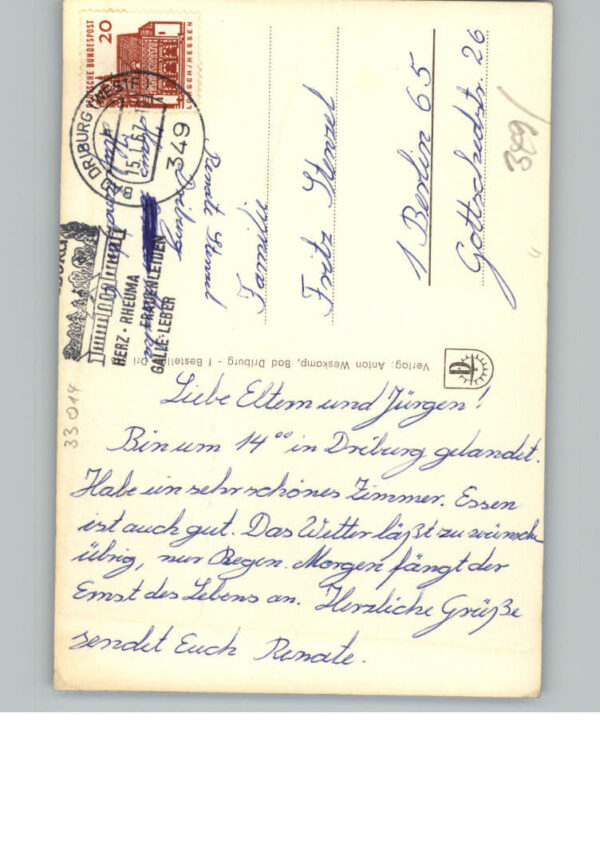 20
DEUTSCHE BUNDESPOST
LORSCH/HESSEN
BAD DRIBURG (WESTF)
15.1.67
349
HERZ · RHEUMA
FRAUENLEIDEN
GALLE · LEBER
Renate Stenzel
Driburg
Haus
Familie
Fritz Stenzel
1 Berlin 65
Gottschedstr. 26
349/
33014
Verlag: Anton Weskamp, Bad Driburg - 1 Bestell
Liebe Eltern und Jürgen!
Bin um 14⁰⁰ in Driburg gelandet.
Habe ein sehr schönes Zimmer. Essen
ist auch gut. Das Wetter läßt zu wünschen
übrig, nur Regen. Morgen fängt der
Ernst des Lebens an. Herzliche Grüße
sendet Euch Renate.